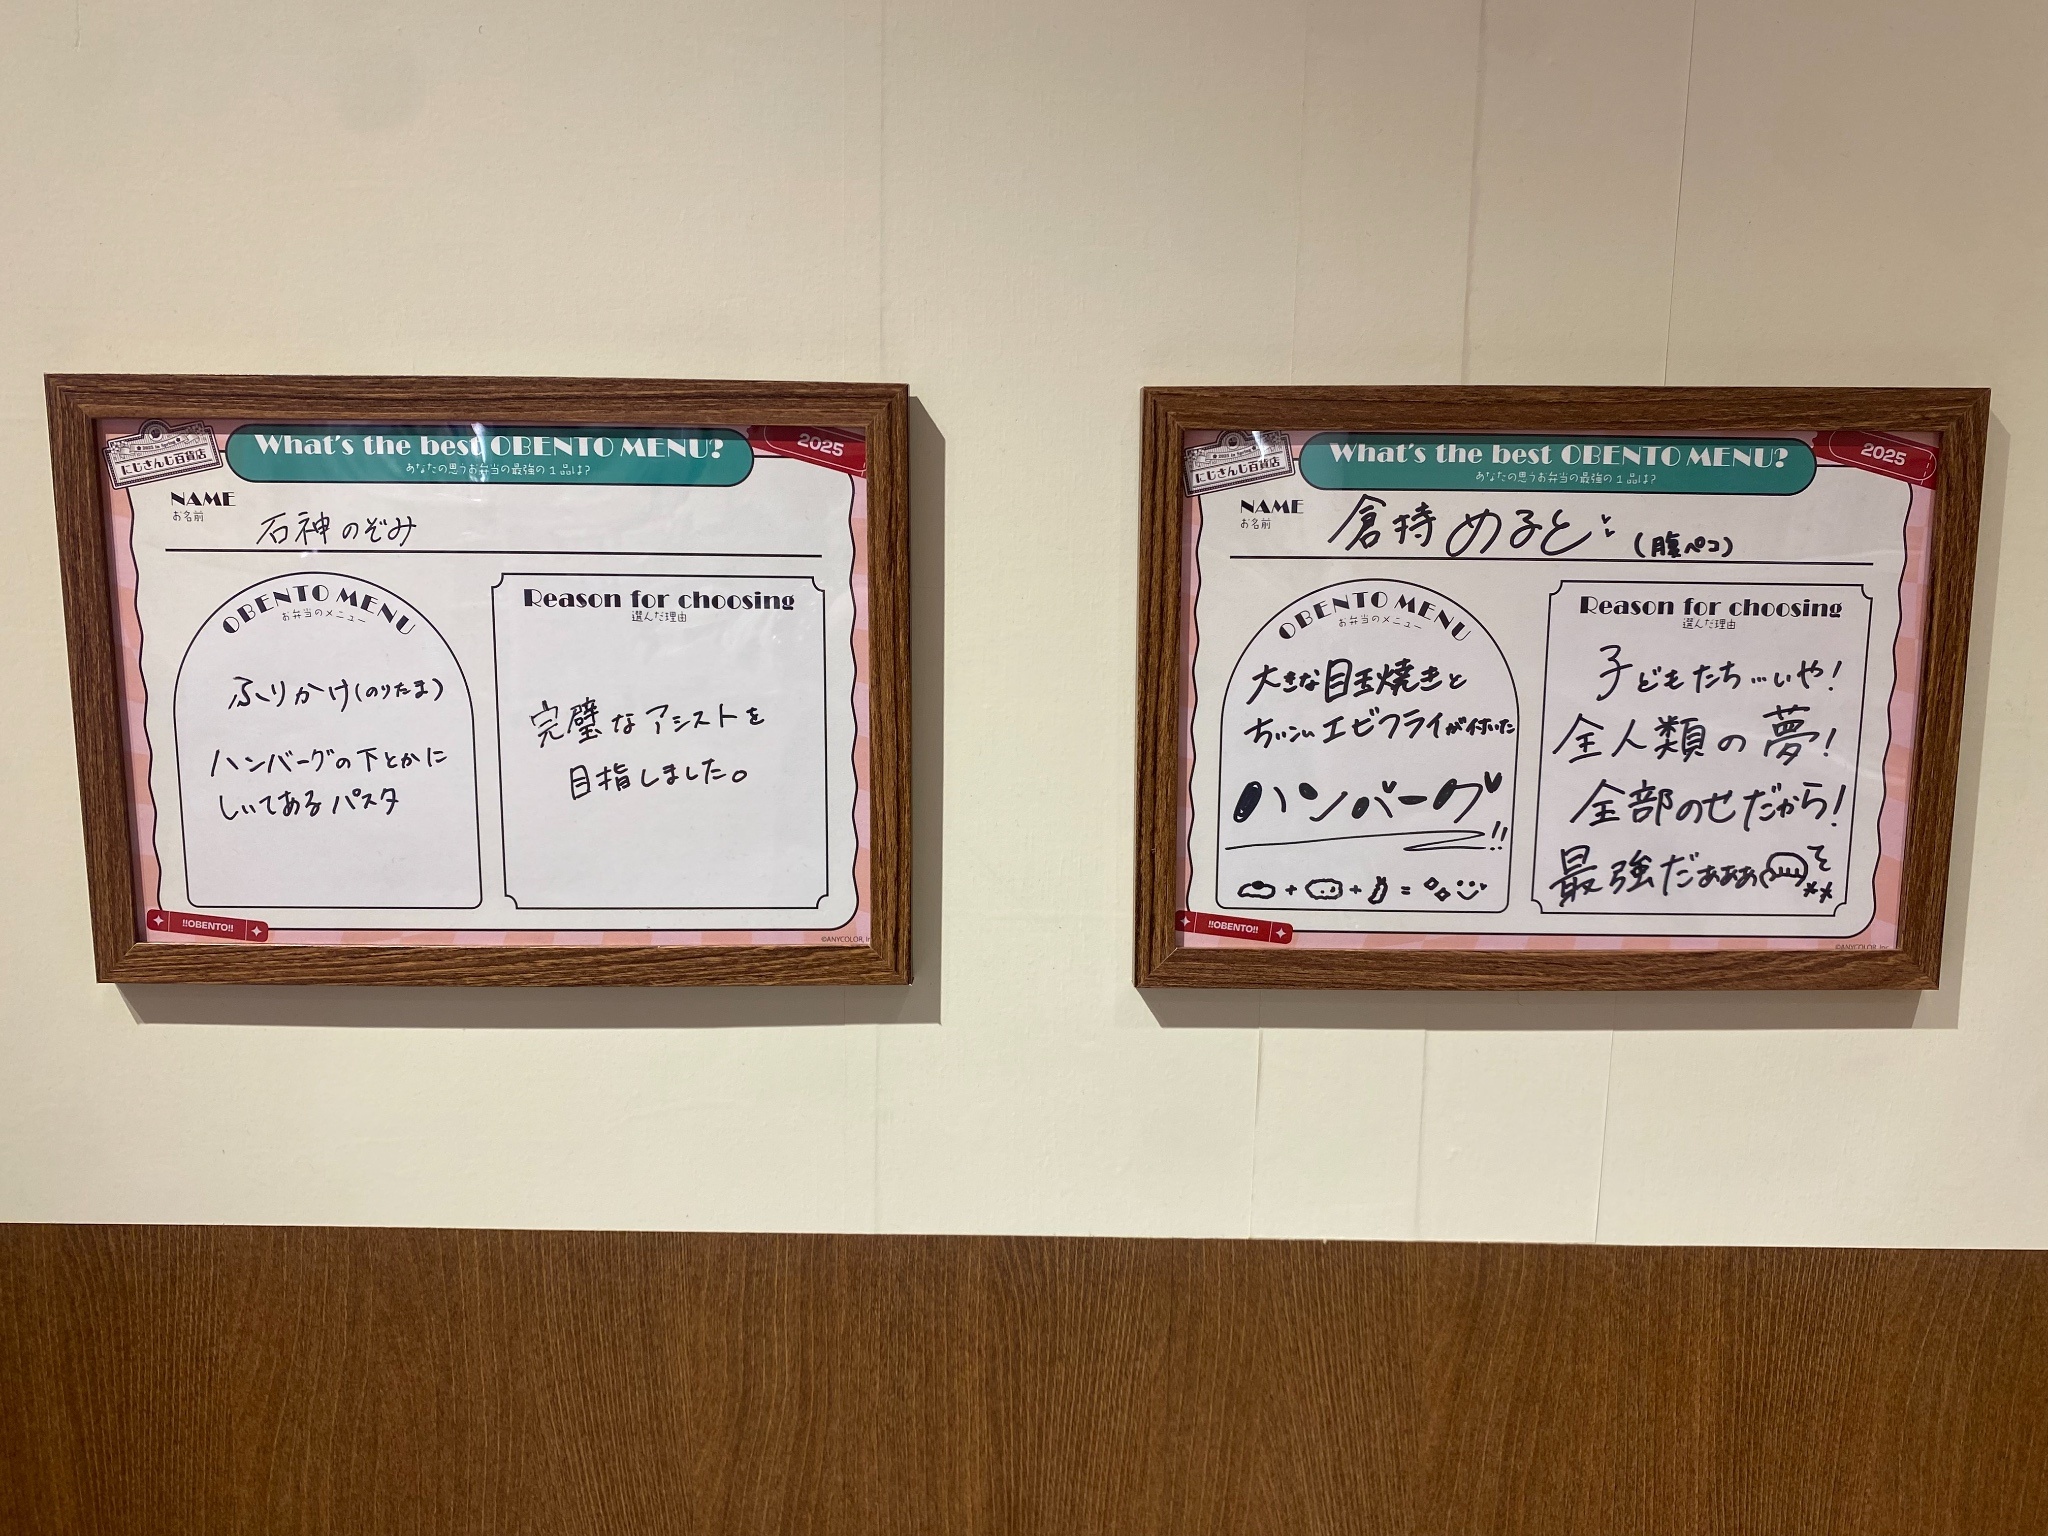 にじさんじ百貨店
What's the best OBENTO MENU?
あなたの思うお弁当の最強の1品は?
2025
NAME
お名前
石神のぞみ
OBENTO MENU
お弁当のメニュー
ふりかけ(のりたま)
ハンバーグの下とかに
しいてあるパスタ
Reason for choosing
選んだ理由
完璧なアシストを
目指しました。
!!OBENTO!!
©ANYCOLOR, In
にじさんじ百貨店
What's the best OBENTO MENU?
あなたの思うお弁当の最強の1品は?
2025
NAME
お名前
倉持めると
(腹ペコ)
OBENTO MENU
お弁当のメニュー
大きな目玉焼きと
ちっこいエビフライが付いた
ハンバーグ!!
+ + =
Reason for choosing
選んだ理由
子どもたち…いや!
全人類の夢!
全部のせだから!
最強だぁぁぁ
!!OBENTO!!
©ANYCOLOR, Inc.